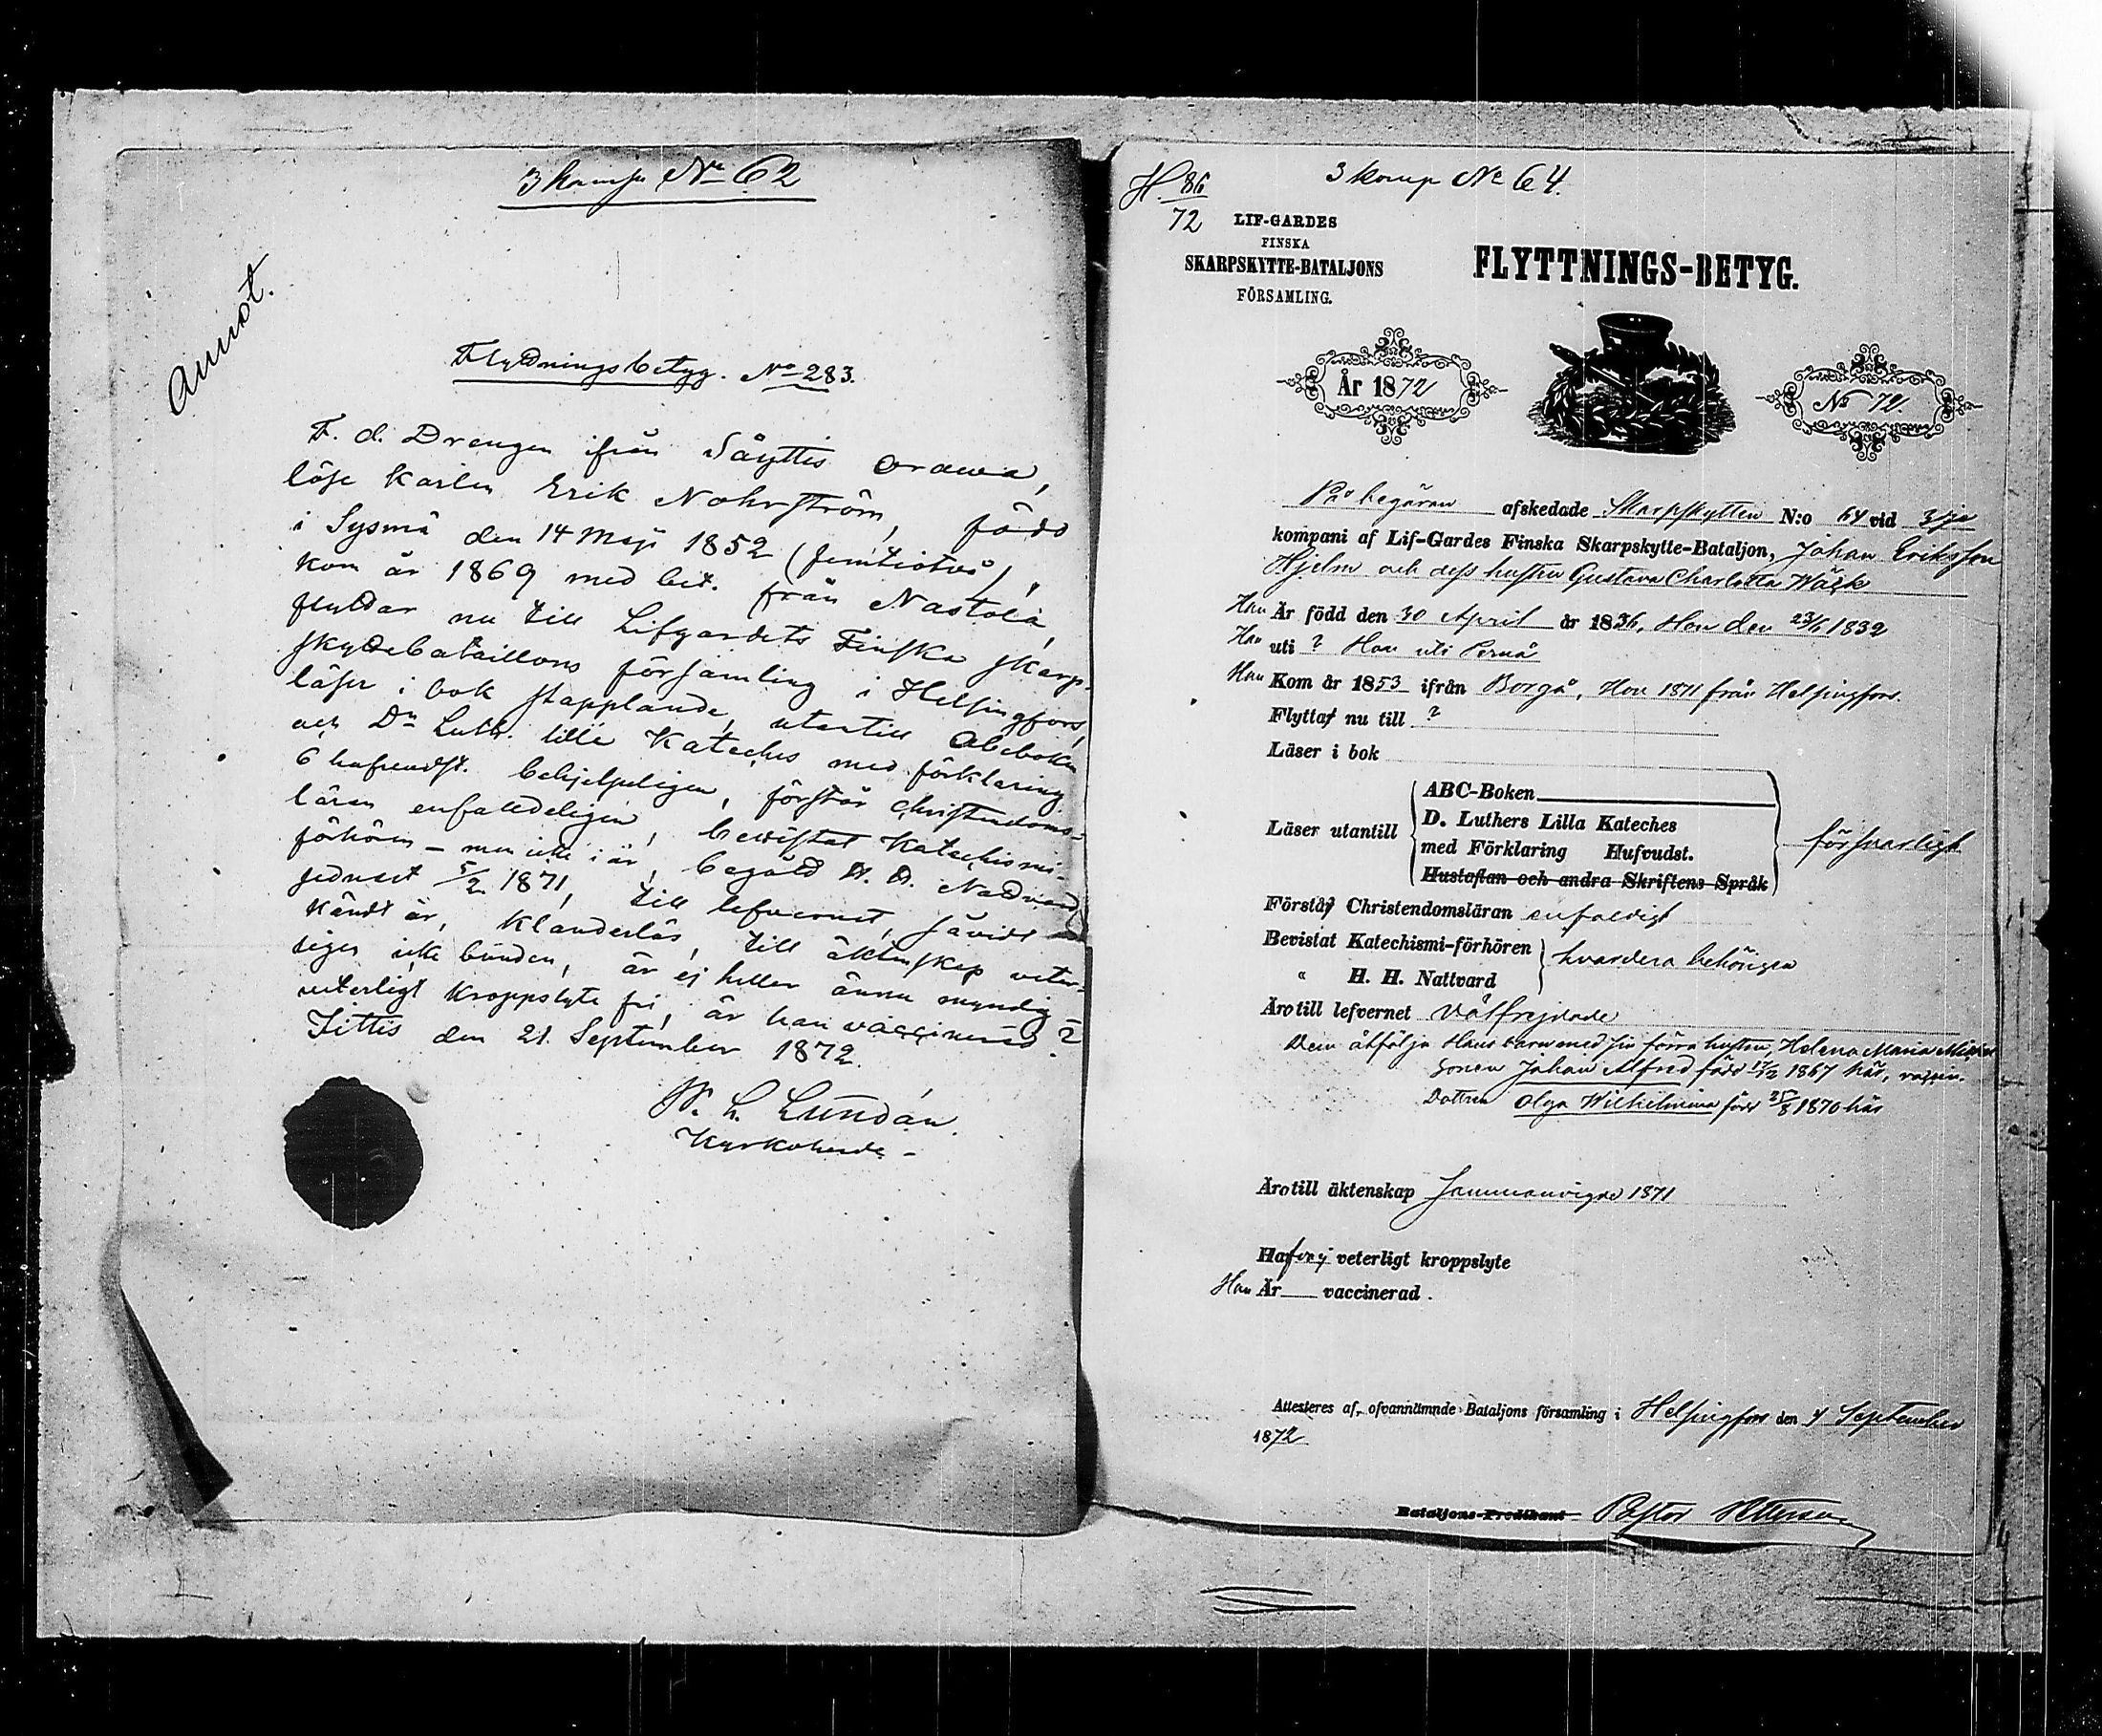 3 komp No 62
Annot.
Flyttningsbetyg. No 283.
F. d. Drengen ifrån Såyttis Orawa,
löse karlen Erik Nohrström, född
i Sysmä den 14 Maji 1852 (femtiotvå),
kom år 1869 med bet. från Nastola,
flyttar nu till Lifgardets Finska skarp-
skyttebataillons församling i Helsingfors,
läser i bok stapplande, utantill Abcboken
och Dr Luth. lilla Kateches med förklaring
6 hufvudst. behjelpeligen, förstår christendoms-
läran enfaldeligen, bevistat Katechismi-
förhören – men icke i år, begått H. H. Nattvard
sednast 5/2 1871, till lefvernet, såvidt
kändt är, klanderlös, till äktenskap veter-
ligen icke bunden, är ej heller ännu myndig
veterligt kroppslyte fri, är han vaccinerad?
Iittis den 21. September 1872.
W. L. Lundán.
Kyrkoherde
H. 86
72
3 komp No 64.
LIF-GARDES
FINSKA
SKARPSKYTTE-BATALJONS
FÖRSAMLING.
FLYTTNINGS-BETYG.
År 1872
No 72.
På begäran afskedade Skarpskytten N:o 64 vid 3dje
kompani af Lif-Gardes Finska Skarpskytte-Bataljon, Johan Eriksson
Hjelm och dess hustru Gustava Charlotta Wärk
Han Är född den 30 April år 1836, Hon den 23/6 1832
Han uti ? Hon uti Pernå
Han Kom år 1853 ifrån Borgå, Hon 1871 från Helsingfors.
Flytta nu till ?
Läser i bok
Läser utantill
ABC-Boken
D. Luthers Lilla Kateches
med Förklaring Hufvudst.
Hustaflan och andra Skriftens Språk
försvarligt
Förstå Christendomsläran enfaldigt
Bevistat Katechismi-förhören
" H. H. Nattvard
hvardera behörigen
Äro till lefvernet välfrejdade
Dem åtfölja Hans barn med sin förra hustru, Helena Maria
Sonen Johan Alfred född 17/12 1867 här, vaccin.
Dottren Olga Wilhelmina född 25/8 1870 här
Äro till äktenskap Sammanvigde 1871
Hafva ej veterligt kroppslyte
Han Är vaccinerad.
Attesteres af ofvannämnde Bataljons församling i Helsingfors den 4 September
1872
Bataljons-Predikant Pastor